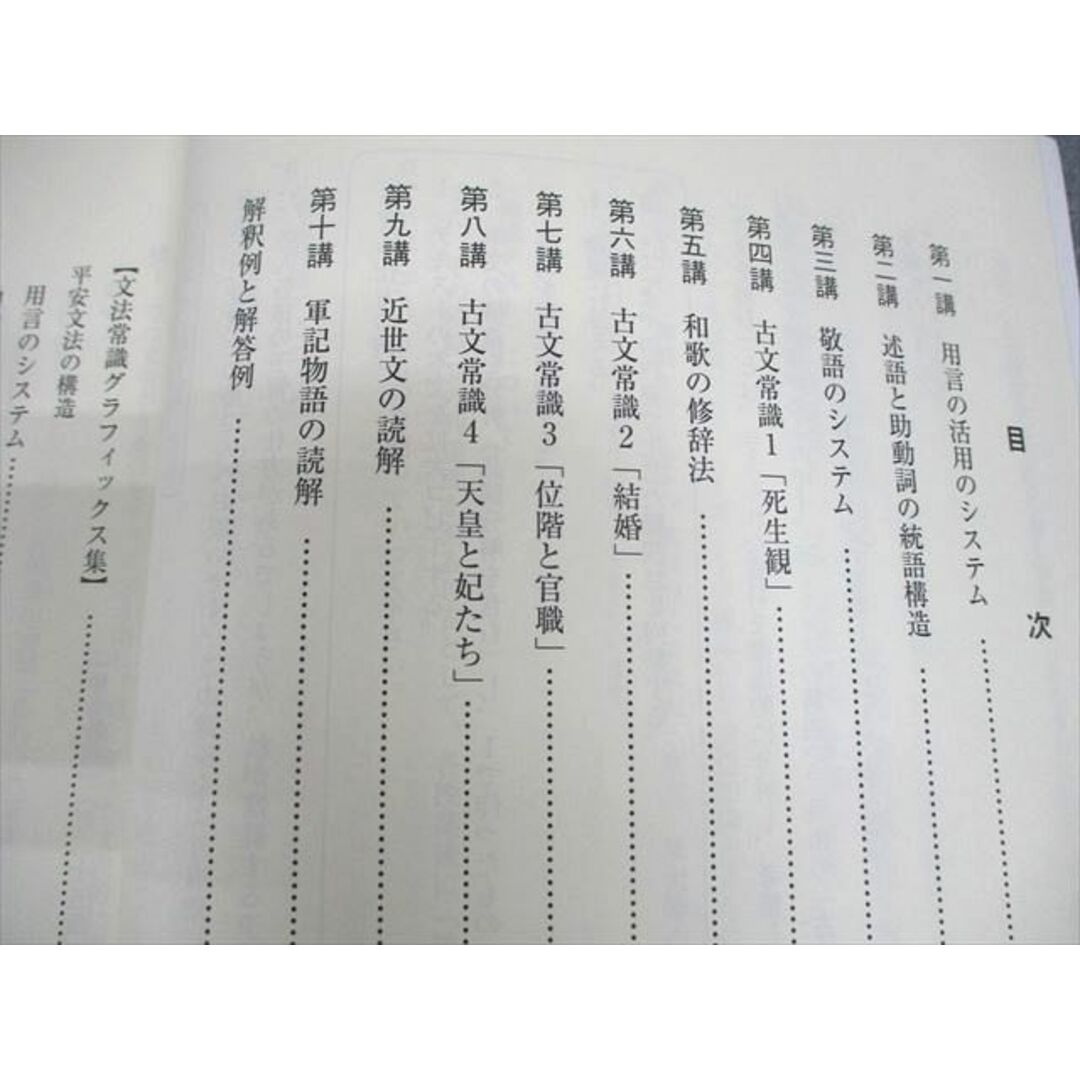 目次
第一講 用言の活用のシステム
第二講 述語と助動詞の統語構造
第三講 敬語のシステム
第四講 古文常識1「死生観」
第五講 和歌の修辞法
第六講 古文常識2「結婚」
第七講 古文常識3「位階と官職」
第八講 古文常識4「天皇と妃たち」
第九講 近世文の読解
第十講 軍記物語の読解
解釈例と解答例
【文法常識グラフィックス集】
平安文法の構造
用言のシステム